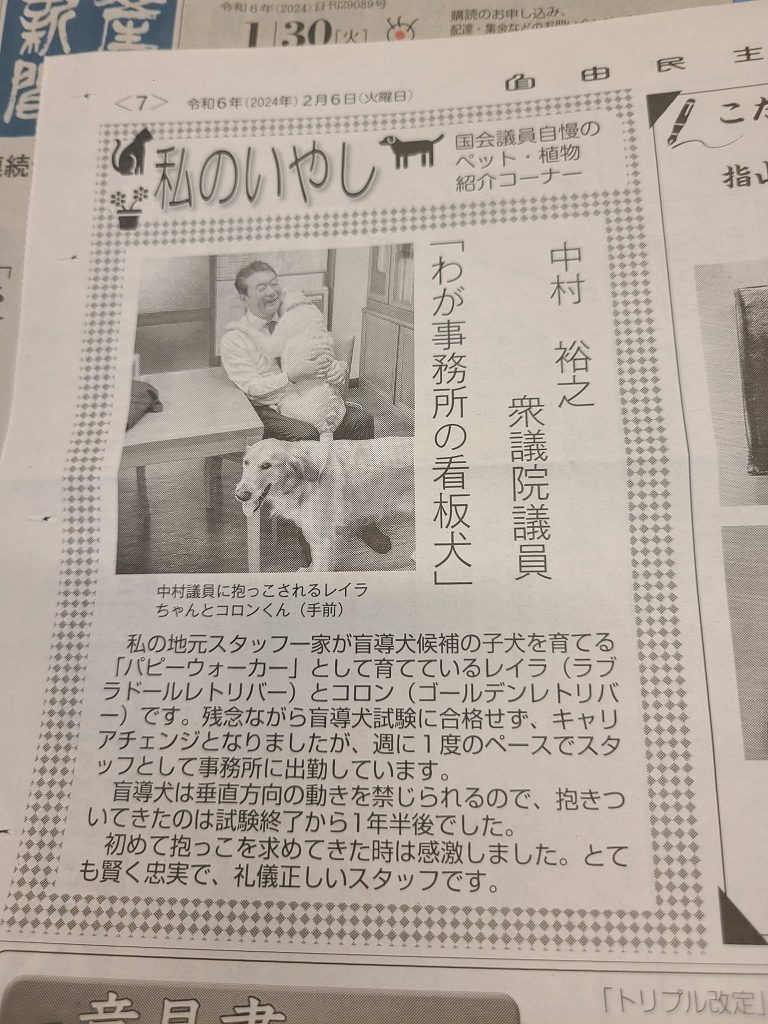 産
新聞
令和6年(2024)日刊29089号
1/30[火]
購読のお申し込み、
自由民主
<7> 令和6年(2024年)2月6日(火曜日)
私のいやし
国会議員自慢の
ペット・植物
紹介コーナー
中村 裕之
衆議院議員
「わが事務所の看板犬」
中村議員に抱っこされるレイラ
ちゃんとコロンくん(手前)
私の地元スタッフ一家が盲導犬候補の子犬を育てる
「パピーウォーカー」として育てているレイラ(ラブ
ラドールレトリバー)とコロン(ゴールデンレトリバ
ー)です。残念ながら盲導犬試験に合格せず、キャリ
アチェンジとなりましたが、週に1度のペースでスタ
ッフとして事務所に出勤しています。
盲導犬は垂直方向の動きを禁じられるので、抱きつ
いてきたのは試験終了から1年半後でした。
初めて抱っこを求めてきた時は感激しました。とて
も賢く忠実で、礼儀正しいスタッフです。
「トリプル改定」